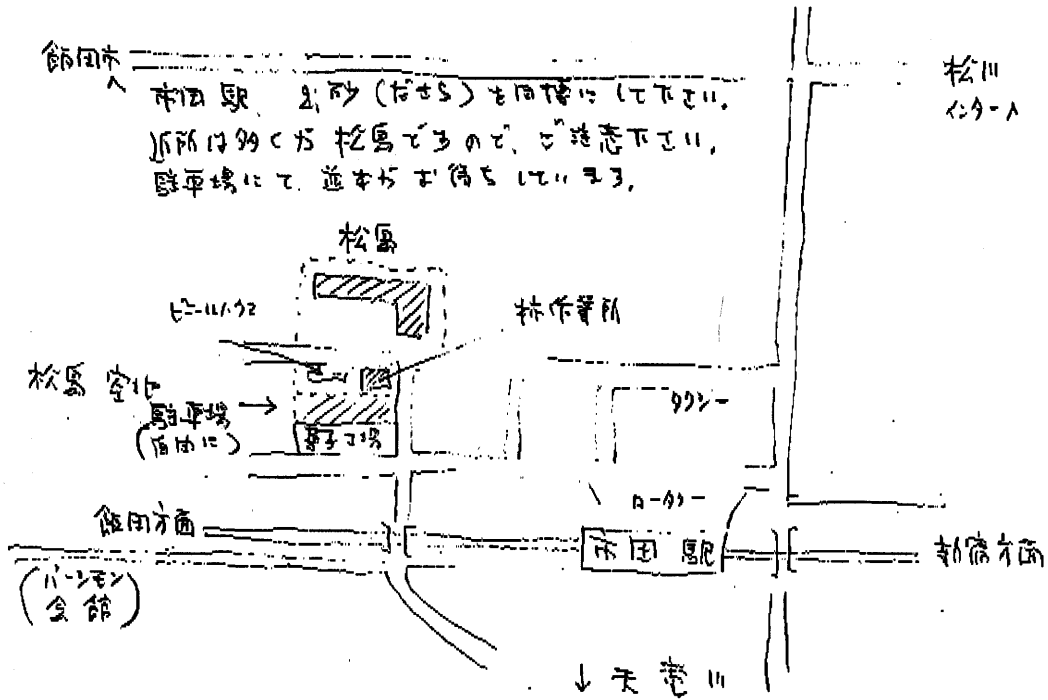 飯田市へ
松川
インター へ
市田駅、
(ださら)を目標にして下さい。
近所は多くが松島ですので、ご注意下さい。
駐車場にて、並木がお待ちしています。
松島
ビニールハウス
柿作業所
松島 空地
駐車場
(自由に)
菓子工場
タクシー
ロータリー
飯田方面
市田 駅
新宿方面
(パーシモン
会館)
↓ 天竜川